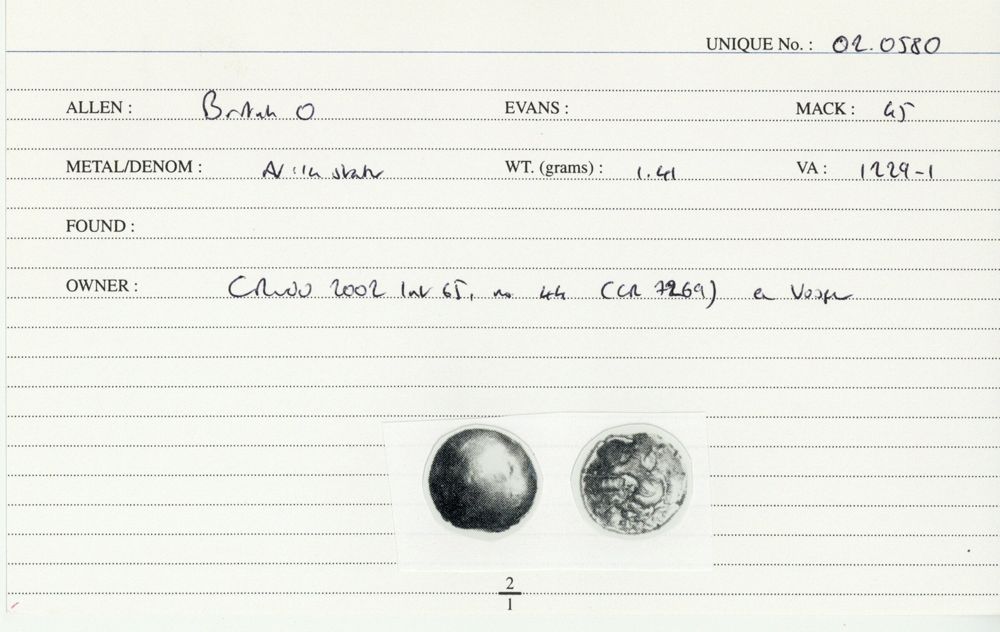 UNIQUE No. : 02.0580
ALLEN : British O EVANS : MACK : 45
METAL/DENOM : AV 1/4 stater WT. (grams) : 1.41 VA : 1229-1
FOUND :
OWNER : 2002 no 44 (CR 7269) ex Vosper
2
1